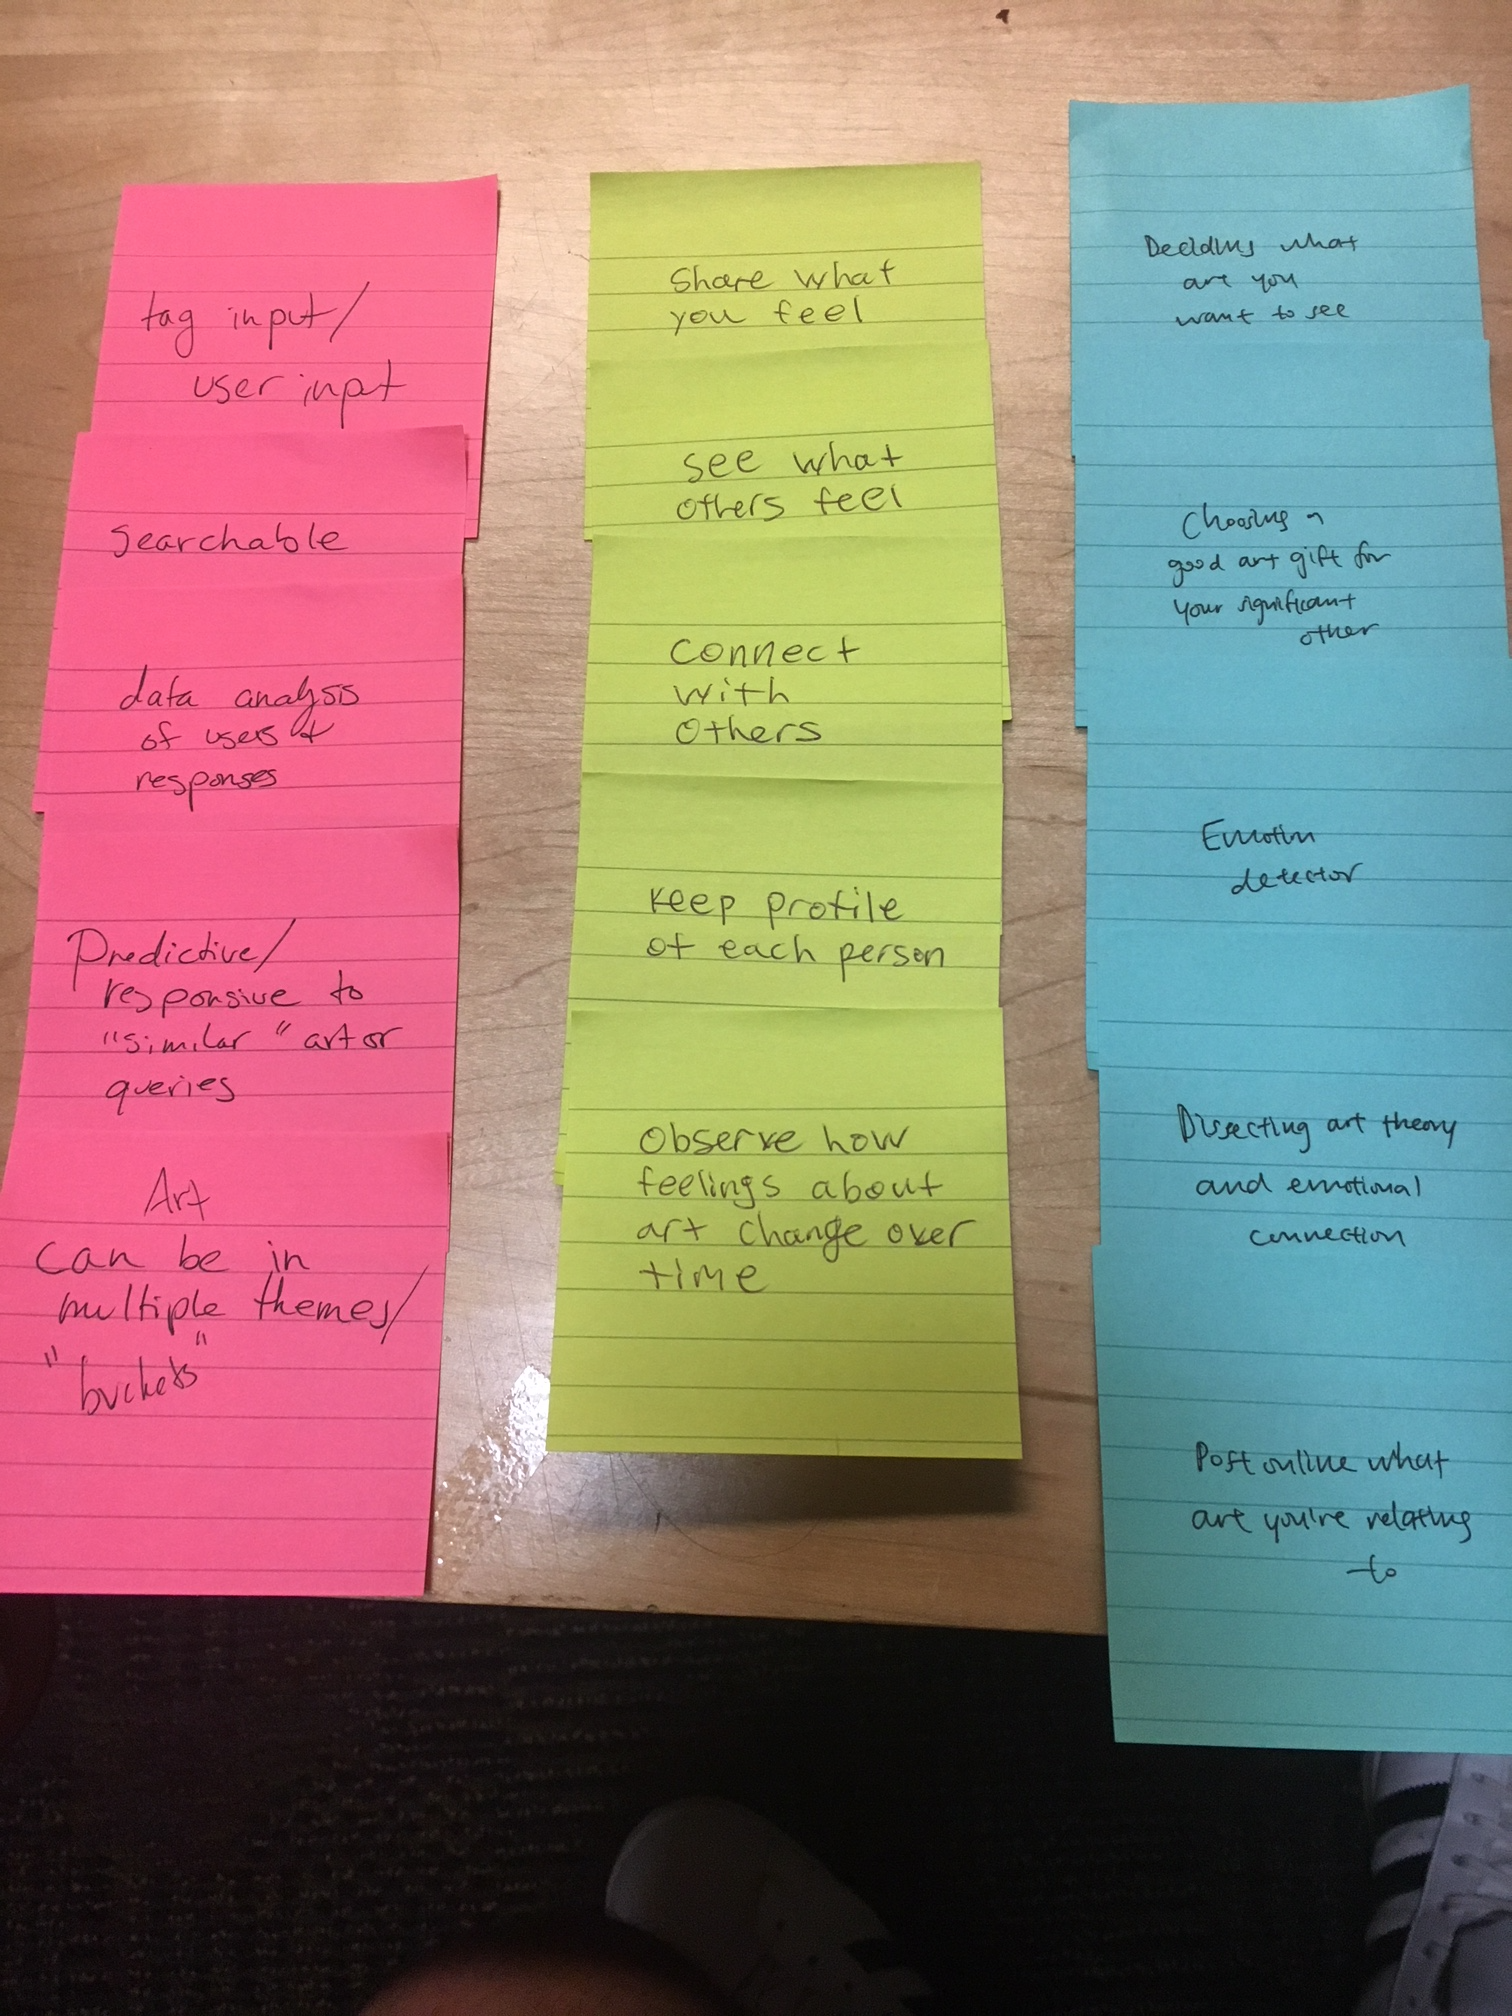 tag input/
user input
Searchable
data analysis
of users &
responses
Predictive/
responsive to
"similar" art or
queries
Art
can be in
multiple themes/
"buckets"
Share what
you feel
see what
others feel
connect
with
others
keep profile
of each person
Observe how
feelings about
art change over
time
Deciding what
art you
want to see
Choosing a
good art gift for
your significant
other
Emotion
detector
Dissecting art theory
and emotional
connection
Post online what
art you're relating
to